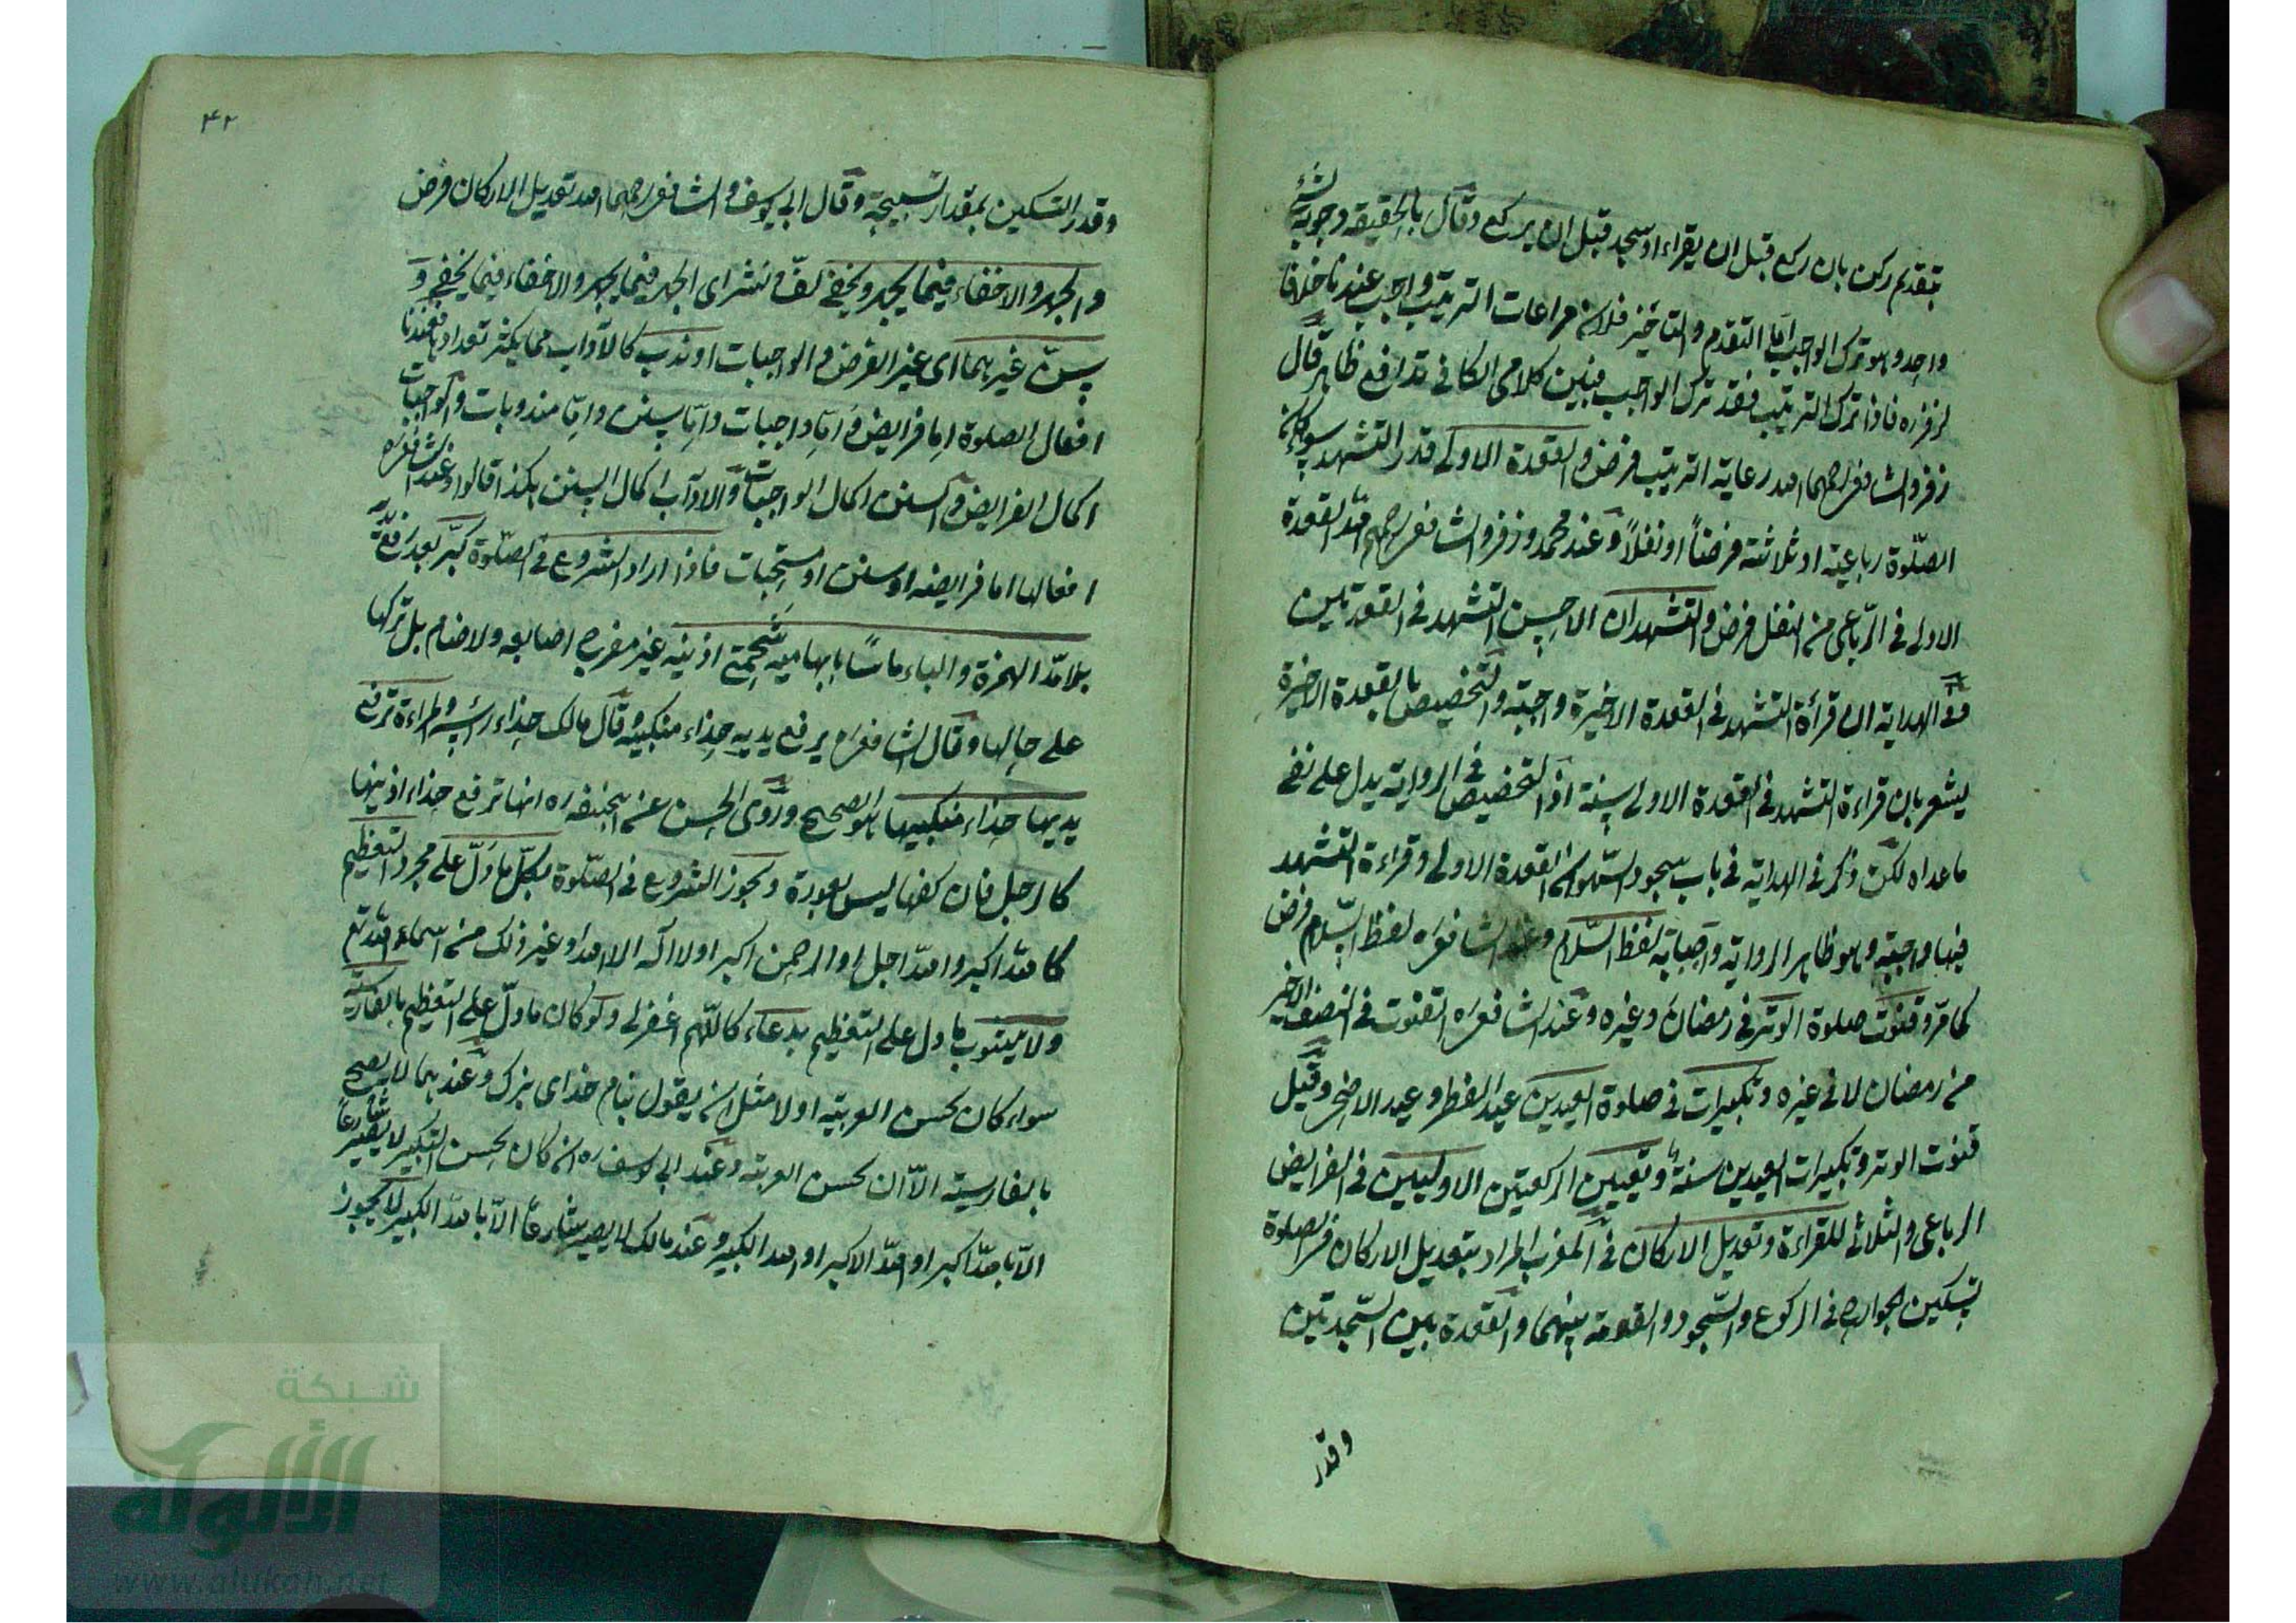 بتقديم ركن بان ركع قبل ان يقراء او سجد قبل ان يركع وقال بالحقيقة وجوبه لشئ
واحد وهو ترك الواجب اما التقدم والتاخير فلان مراعات الترتيب واجب عندنا خلافا
لزفر ره فاذا ترك الترتيب فقد ترك الواجب فبين كلامي الكافي تدافع ظاهر قال
زفر والشافعي رحمهما الله رعاية الترتيب فرض والقعدة الاولى قدر التشهد سواء كانت
الصلوة رباعية او ثلاثية فرضاً او نفلاً وعند محمد وزفر والشافعي رحمهم الله القعدة
الاولى في الرباعي من النفل فرض والتشهدان الاحسن التشهد في القعدتين
وفي الهداية ان قرأة التشهد في القعدة الاخيرة واجبة والتخصيص بالقعدة الاخيرة
يشعر بان قراءة التشهد في القعدة الاولى سنة اذ التخصيص في الرواية يدل على نفي
ما عداه لكن ذكر في الهداية في باب سجود السهو ان القعدة الاولى وقراءة التشهد
فيها واجبة وهو ظاهر الرواية واصابة لفظ السلام وعند الشافعي ره لفظ السلام فرض
كما مر وقنوت صلوة الوتر في رمضان وغيره وعند الشافعي ره القنوت في النصف الاخير
من رمضان لا في غيره وتكبيرات في صلوة العيدين عيد الفطر وعيد الاضحى وقيل
قنوت الوتر وتكبيرات العيدين سنة وتعيين الركعتين الاوليين في الفرايض
الرباعي والثلاثي للقراءة وتعديل الاركان في المغرب المراد بتعديل الاركان في الصلوة
تسكين الجوارح في الركوع والسجود والقومة بينهما والقعدة بين السجدتين
وقدر
٤٢
وقدر التسكين بمقدار تسبيحة وقال ابي يوسف والشافعي رحمهما الله تعديل الاركان فرض
والجهر والاخفاء فيما يجهر ويخفى لف ونشر اى الجهر فيما يجهر والاخفاء فيما يخفى و
سن غيرهما اى غير الفرض والواجبات او ندب كالاداب مما يكثر تعداده فعندنا
افعال الصلوة اما فرايض واما واجبات واما سنن واما مندوبات والواجبات
اكمال الفرايض والسنن اكمال الواجبات والاداب اكمال السنن هكذا قالوا وعند الشافعي ره
افعالها اما فرايضه او سنن او مستحبات فاذا اراد الشروع في الصلوة كبر بعد رفع يديه
بلا مد الهمزة والباء ماسًا بابهاميه شحمتى اذنيه غير مفرج اصابعه ولا ضام بل تركها
على حالها وقال الشافعي ره يرفع يديه حذاء منكبيه وقال مالك حذاء رأسه والمراءة ترفع
يديها حذاء منكبيها هو الصحيح وروى الحسن عن ابي حنيفه ره انها ترفع حذاء اذنيها
كالرجل فان كفها ليس بعورة ويجوز الشروع في الصلوة بكل ما دل على مجرد التعظيم
كالله اكبر والله اجل او الرحمن اكبر او لا اله الا الله او غير ذلك من اسماء الله تع
ولا يشوب ما دل على التعظيم بدعاء كاللهم اغفر لى ولو كان ما دل على التعظيم بالفارسية
سواء كان يحسن العربية او لا مثل ان يقول بنام خداى بزرك وعندهما لا يصح
بالفارسية الا ان يحسن العربية وعند ابي يوسف ره ان كان يحسن التكبير لا يصير شارعا
الا بالله اكبر او الله الاكبر او الله الكبير وعند مالك لا يصير شارعاً الا بالله الكبير لا يجوز
شبكة
الألوكة
www.alukah.net